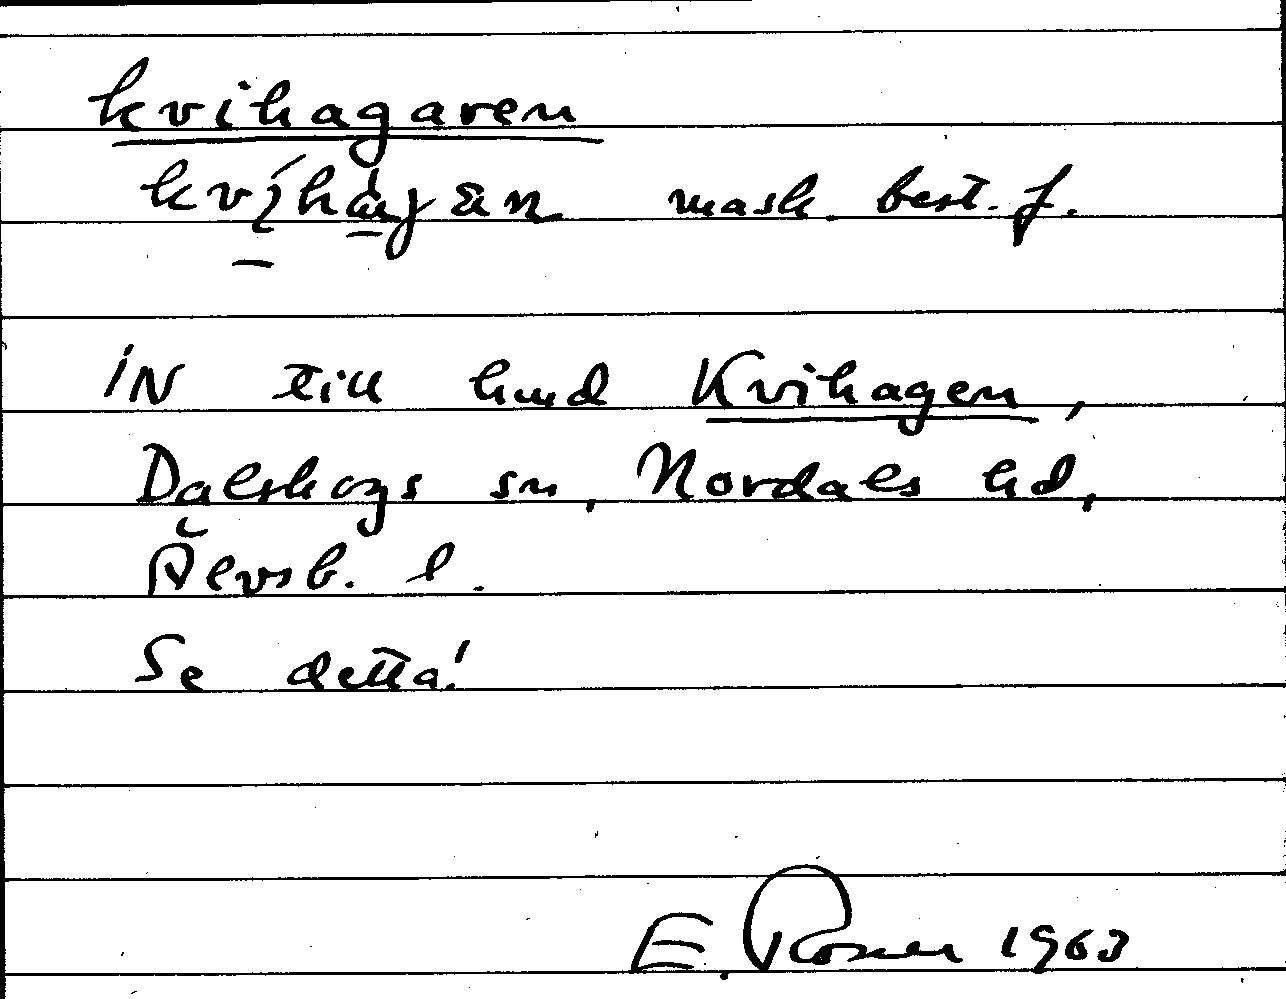 kvihagaren
mask. best. f.
IN till hmd Kvihagen,
Dalskogs sn, Nordals hd,
Älvsb. l.
Se detta!
E. Rosén 1963